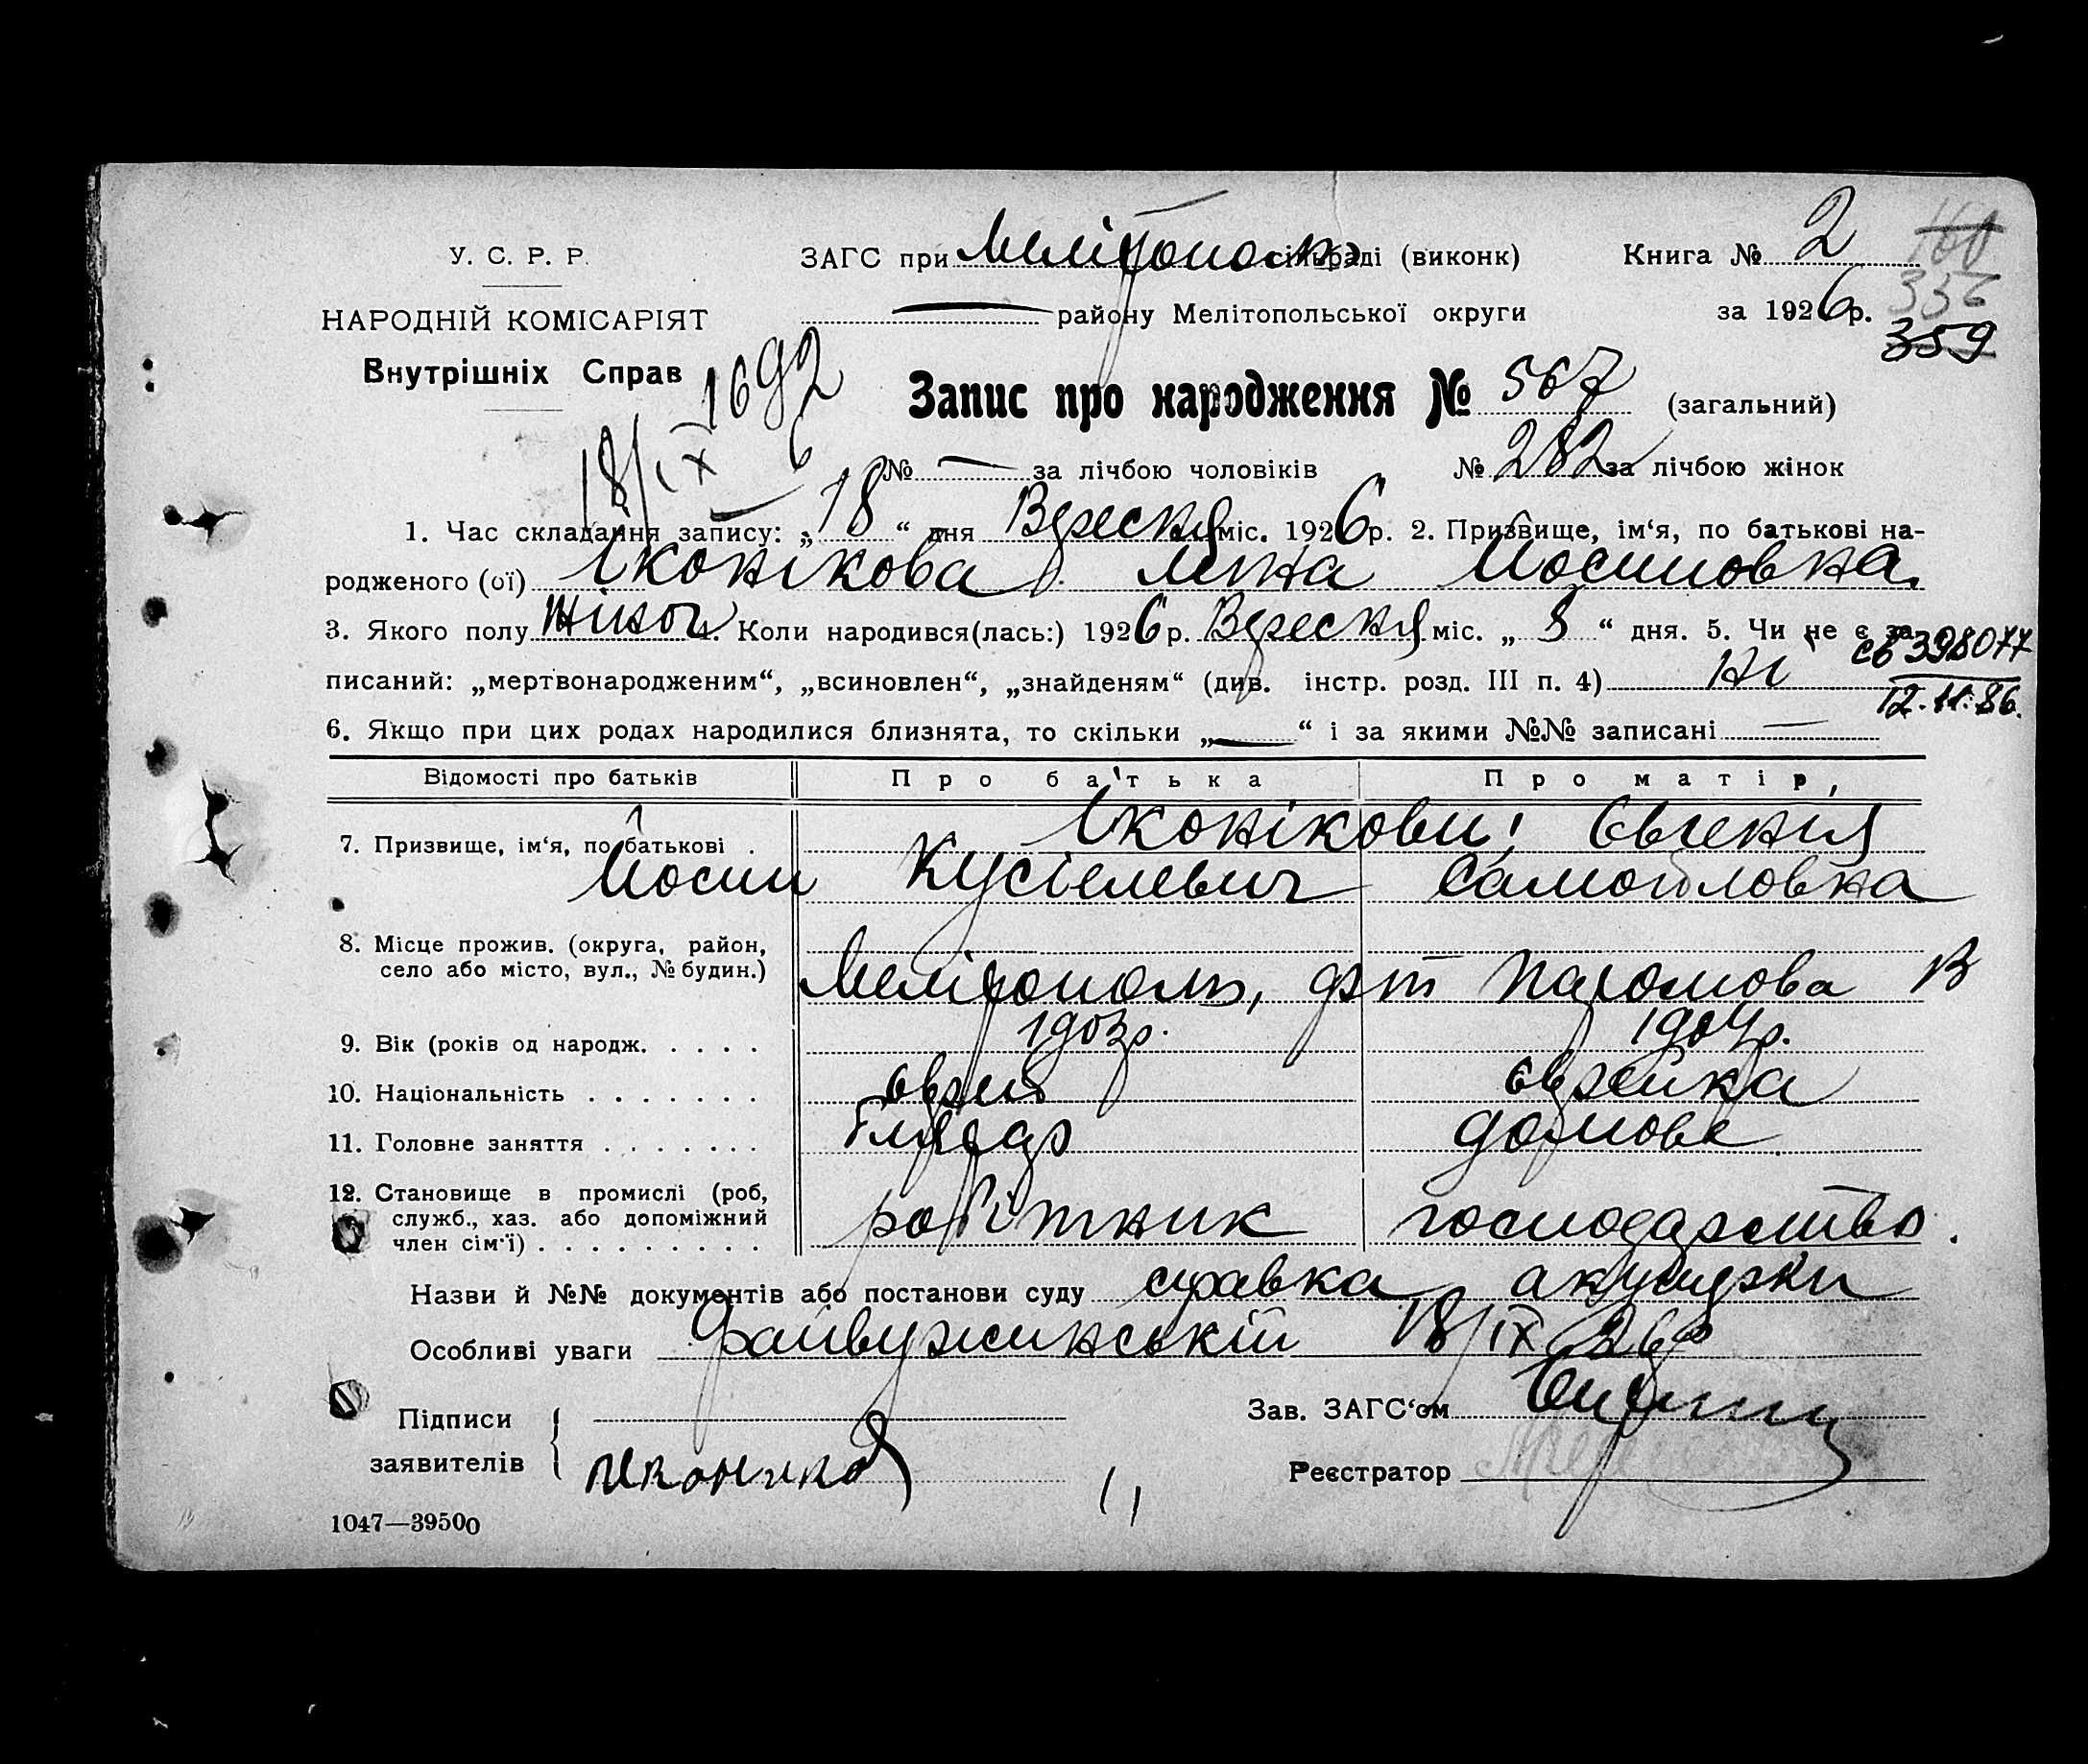 У. С. Р. Р.
ЗАГС при Мелітополь сільраді (виконк)
Книга № 2
160
НАРОДНІЙ КОМІСАРІЯТ
— району Мелітопольської округи
за 1926 р.
356
359
Внутрішніх Справ
1692
Запис про народження № 567 (загальний)
18/IX 6
№ — за лічбою чоловіків № 282 за лічбою жінок
1. Час складання запису: „18“ дня Вересня міс. 1926 р. 2. Призвище, ім‘я, по батькові на-
родженого (ої) Іконікова Ліна Йосиповна
3. Якого полу жіноч 4. Коли народився(лась:) 1926 р. Вересня міс. „8“ дня. 5. Чи не є за-
св 398077
писаний: „мертвонародженим“, „всиновлен“, „знайденям“ (див. інстр. розд. III п. 4) Ні
12.11.86.
6. Якщо при цих родах народилися близнята, то скільки „—“ і за якими №№ записані —
Відомості про батьків Про батька Про матір,
7. Призвище, ім‘я, по батькові . Іконікови: Євгенія
Йосип Кусіелевич Самойловна
8. Місце прожив. (округа, район,
село або місто, вул., № будин.) Мелітополь, Паромова
9. Вік (років од народж. . . . . 1903р. 1904р.
10. Національність . . . . . . . єврей єврейка
11. Головне заняття . . . . . . . домове
12. Становище в промислі (роб,
служб., хаз. або допоміжний робітник господарство.
член сім‘ї) . . . . . . . . .
Назви й №№ документів або постанови суду справка акушерки
Особливі уваги Файвужинській 18/IX 26р
Зав. ЗАГС‘ом
Підписи
заявителів
Реєстратор
1047—39500